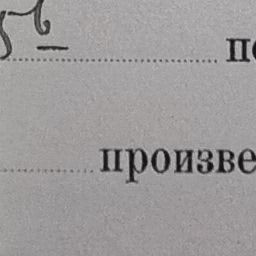 по
произве